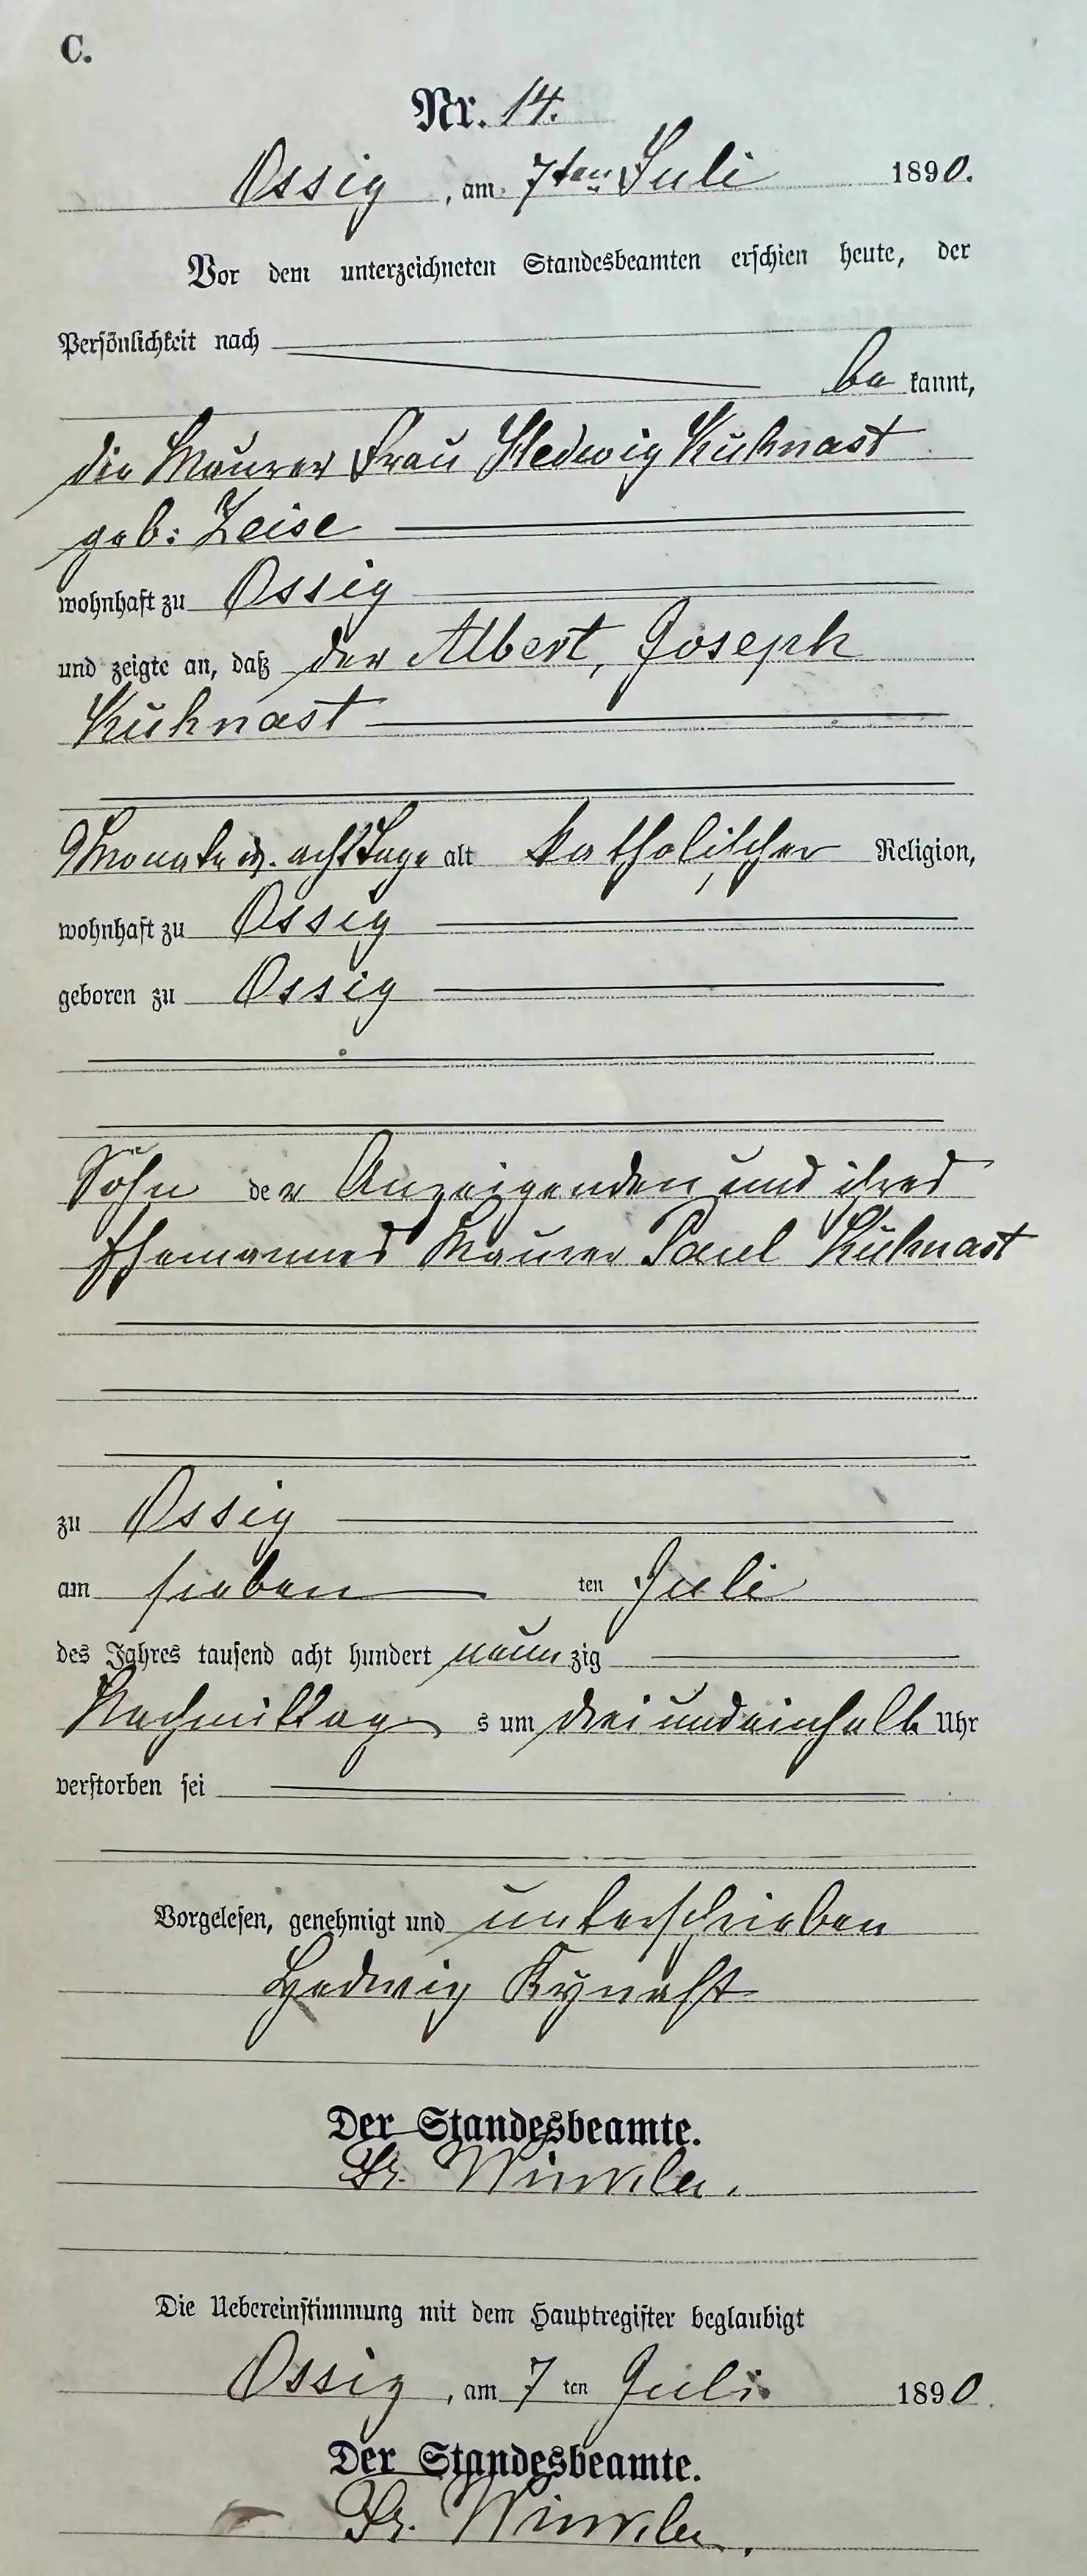 C.
Nr. 14.
Ossig, am 7ten Juli 1890.
Vor dem unterzeichneten Standesbeamten erschien heute, der
Persönlichkeit nach
be kannt,
die Maurer Frau Hedwig Kuhnast
geb: Zeise
wohnhaft zu Ossig
und zeigte an, daß der Albert, Joseph
Kuhnast
9 Monate u. acht Tage alt katholischer Religion,
wohnhaft zu Ossig
geboren zu Ossig
Sohn der Anzeigenden und ihres
Ehemannes Maurer Paul Kuhnast
zu Ossig
am sieben ten Juli
des Jahres tausend acht hundert neun zig
Nachmittag s um drei und einhalb Uhr
verstorben sei
Vorgelesen, genehmigt und unterschrieben
Hedwig Kynast
Der Standesbeamte.
Fr. Winkler.
Die Uebereinstimmung mit dem Hauptregister beglaubigt
Ossig, am 7 ten Juli 1890.
Der Standesbeamte.
Fr. Winkler.